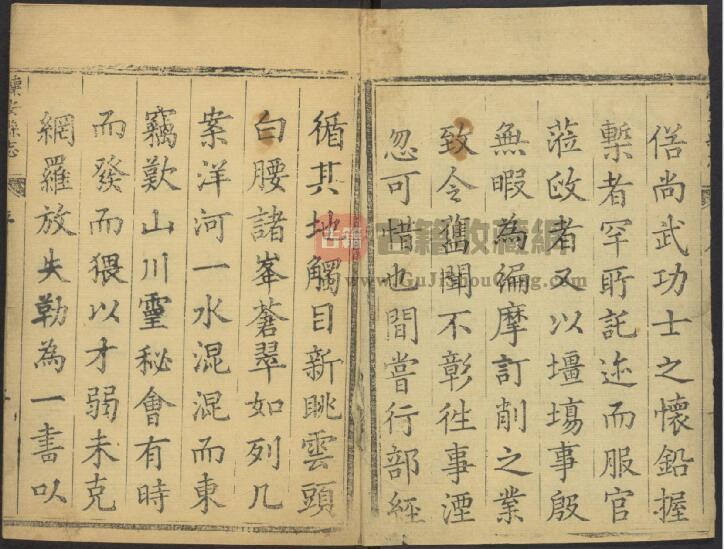 俗尚武功士之懷鉛握
槧者罕所託迹而服官
蒞政者又以壃塲事殷
無暇為編摩訂削之業
致令舊聞不彰徃事湮
忽可惜也間嘗行部經
循其地觸目新眺雲頭
白腰諸峯蒼翠如列几
案洋河一水混混而東
竊歎山川靈秘會有時
而發而猥以才弱未克
網羅放失勒為一書以
懷安縣志
序
古籍
古籍收藏網
www.GuJiShouCang.com